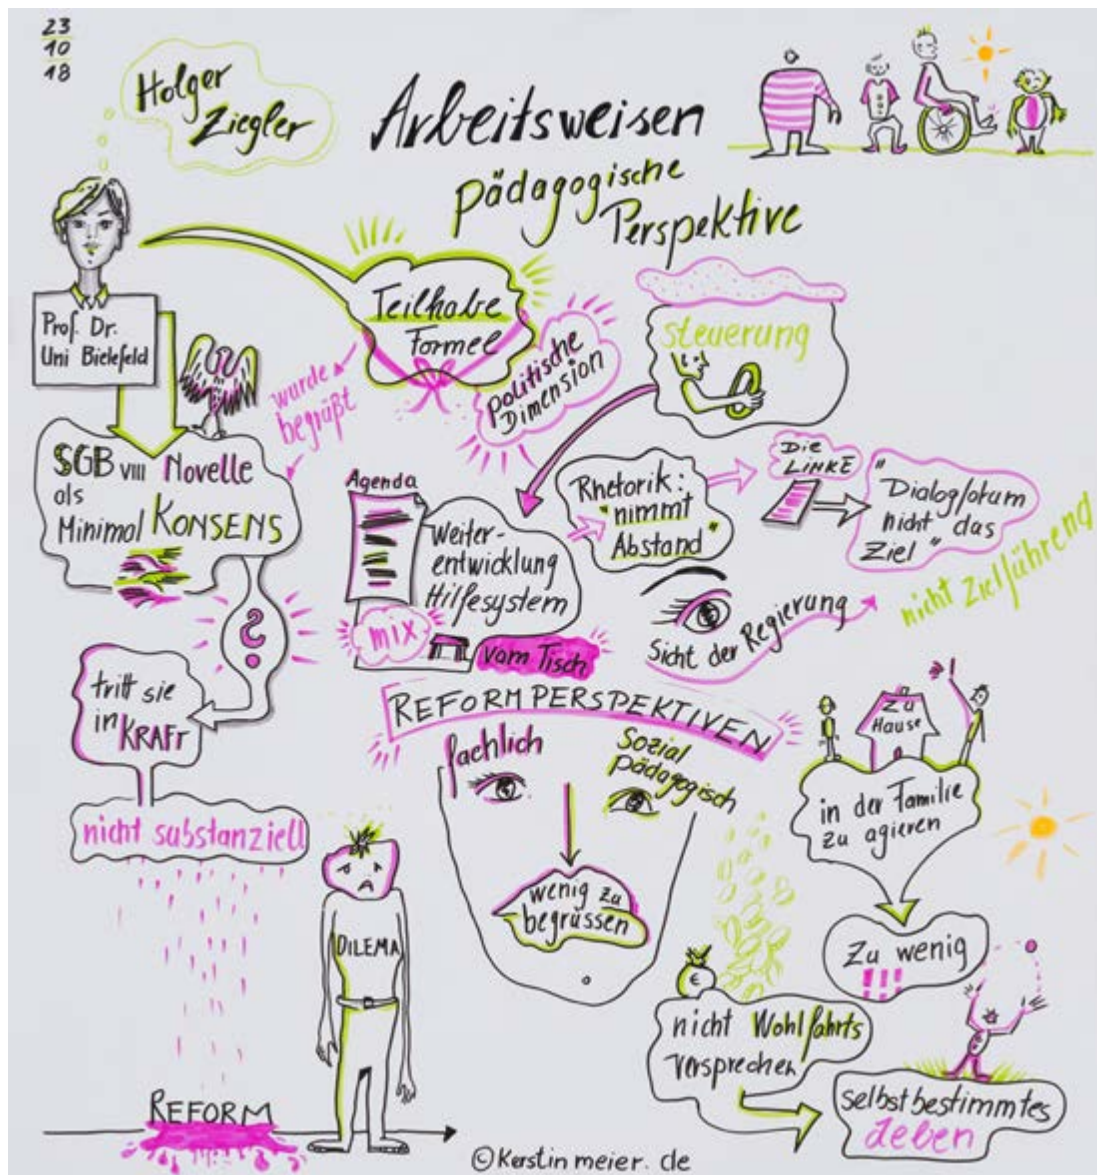 23
10
18
Holger
Ziegler
Arbeitsweisen
pädagogische
Perspektive
Prof. Dr.
Uni Bielefeld
Teilhabe
Formel
wurde
begrüßt
politische
Dimension
Steuerung
SGB VIII Novelle
als
Minimal KONSENS
?
tritt sie
in KRAFT
nicht substanziell
REFORM
DILEMA
Agenda
Weiter-
entwicklung
Hilfesystem
mix
vom Tisch
Rhetorik:
"nimmt
Abstand"
Die
LINKE
"Dialogforum
nicht das
Ziel"
Sicht der Regierung
nicht Zielführend
REFORMPERSPEKTIVEN
fachlich
Sozial
pädagogisch
wenig zu
begrüssen
zu
Hause
in der Familie
zu agieren
Zu wenig
!!!
€
nicht Wohlfahrts
versprechen
selbstbestimmtes
Leben
© Kerstin meier. de